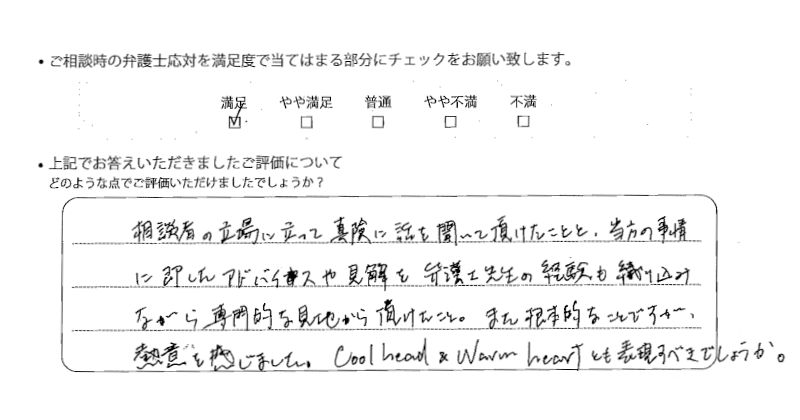 ・ご相談時の弁護士応対を満足度で当てはまる部分にチェックをお願い致します。
満足 やや満足 普通 やや不満 不満
・上記でお答えいただきましたご評価について
どのような点でご評価いただけましたでしょうか？
相談者の立場に立って真険に話を聞いて頂けたことと、当方の事情
に即したアドバイスや見解を弁護士先生の経験も織り込み
ながら専門的な見地から頂けたこと。また根本的なことですが、
熱意を感じました。Cool head & Warm heartとも表現すべきでしょうか。